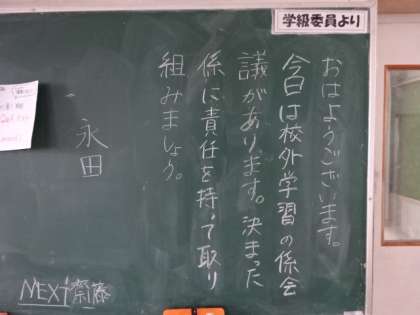 学級委員より
おはようございます。
今日は校外学習の係会
議があります。決まった
係に責任を持って取り
組みましょう。
永田
NEXT齋藤